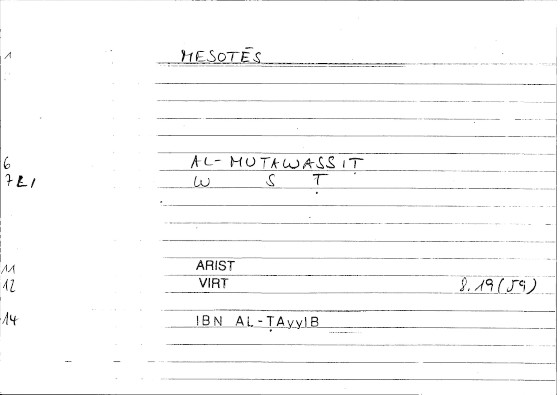 1 MESOTĒS
6 AL-MUTAWASSIṬ
7 W S Ṭ
11 ARIST
12 VIRT 8.19(59)
14 IBN AL-ṬAyyIB